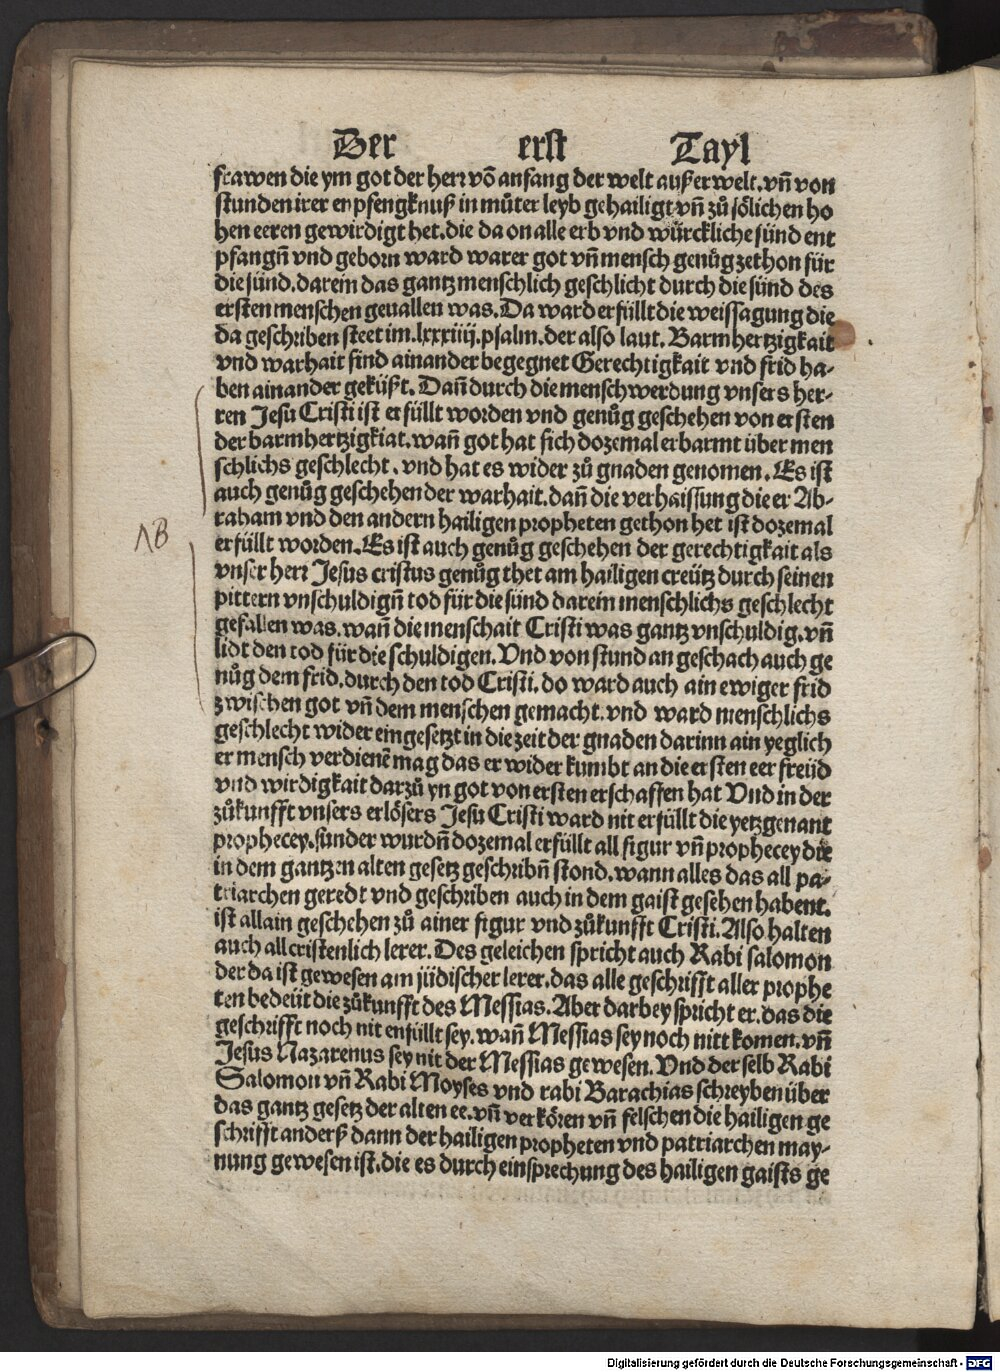 Der erst Tayl
frawen die ym got der herr võ anfang der welt außerwelt. vñ von
stunden irer enpfengknuß in můter leyb gehailigt vñ zů sölichen ho
hen eeren gewirdigt het. die da on alle erb vnd würckliche sünd ent
pfangñ vnd geborn ward warer got vñ mensch genůgzethon für
die sünd. darein das gantz menschlich geschlicht durch die sünd des
ersten menschen geuallen was. Da ward erfüllt die weissagung die
da geschriben steet im. lxxxiiij. psalm. der also laut. Barmhertzigkait
vnd warhait sind ainander begegnet Gerechtigkait vnd frid ha-
ben ainander geküßt. Dañ durch die menschwerdung vnsers her-
ren Jesu Cristi ist erfüllt worden vnd genůg geschehen von ersten
der barmhertzigkiat. wañ got hat sich dozemal erbarmt über men
schlichs geschlecht. vnd hat es wider zů gnaden genomen. Es ist
auch genůg geschehen der warhait. dañ die verhaissung die er Ab-
raham vnd den andern hailigen propheten gethon het ist dozemal
erfüllt worden. Es ist auch genůg geschehen der gerechtigkait als
vnser herr Jesus cristus genůg thet am hailigen creütz durch seinen
pittern vnschuldigñ tod für die sünd darein menschlichs geschlecht
gefallen was. wañ die menschait Cristi was gantz vnschuldig. vñ
lidt den tod für die schuldigen. Vnd von stund an geschach auch ge
nůg dem frid. durch den tod Cristi. do ward auch ain ewiger frid
zwischen got vñ dem menschen gemacht. vnd ward menschlichs
geschlecht wider eingesetzt in die zeit der gnaden darinn ain yeglich
er mensch verdienē mag das er wider kumbt an die ersten eer freüd
vnd wirdigkait darzů yn got von ersten erschaffen hat Vnd in der
zůkunfft vnsers erlösers Jesu Cristi ward nit erfüllt die yetzgenant
prophecey. sunder wurdñ dozemal erfüllt all figur vñ prophecey die
in dem gantzen alten gesetz geschribñ stond. wann alles das all pa-
triarchen geredt vnd geschriben auch in dem gaist gesehen habent.
ist allain geschehen zů ainer figur vnd zůkunfft Cristi. Also halten
auch all cristenlich lerer. Des geleichen spricht auch Rabi salomon
der da ist gewesen am jüdischer lerer. das alle geschrifft aller prophe
ten bedeüt die zůkunfft des Messias. Aber darbey spricht er. das die
geschrifft noch nit enfüllt sey. wañ Messias sey noch nitt komen. vñ
Jesus Nazarenus sey nit der Messias gewesen. Vnd der selb Rabi
Salomon vñ Rabi Moyses vnd rabi Barachias schreyben über
das gantz gesetz der alten ee. vñ verkören vñ felschen die hailigen ge
schrifft anderß dann der hailigen propheten vnd patriarchen may-
nung gewesen ist. die es durch einsprechung des hailigen gaists ge
NB
Digitalisierung gefördert durch die Deutsche Forschungsgemeinschaft - DFG